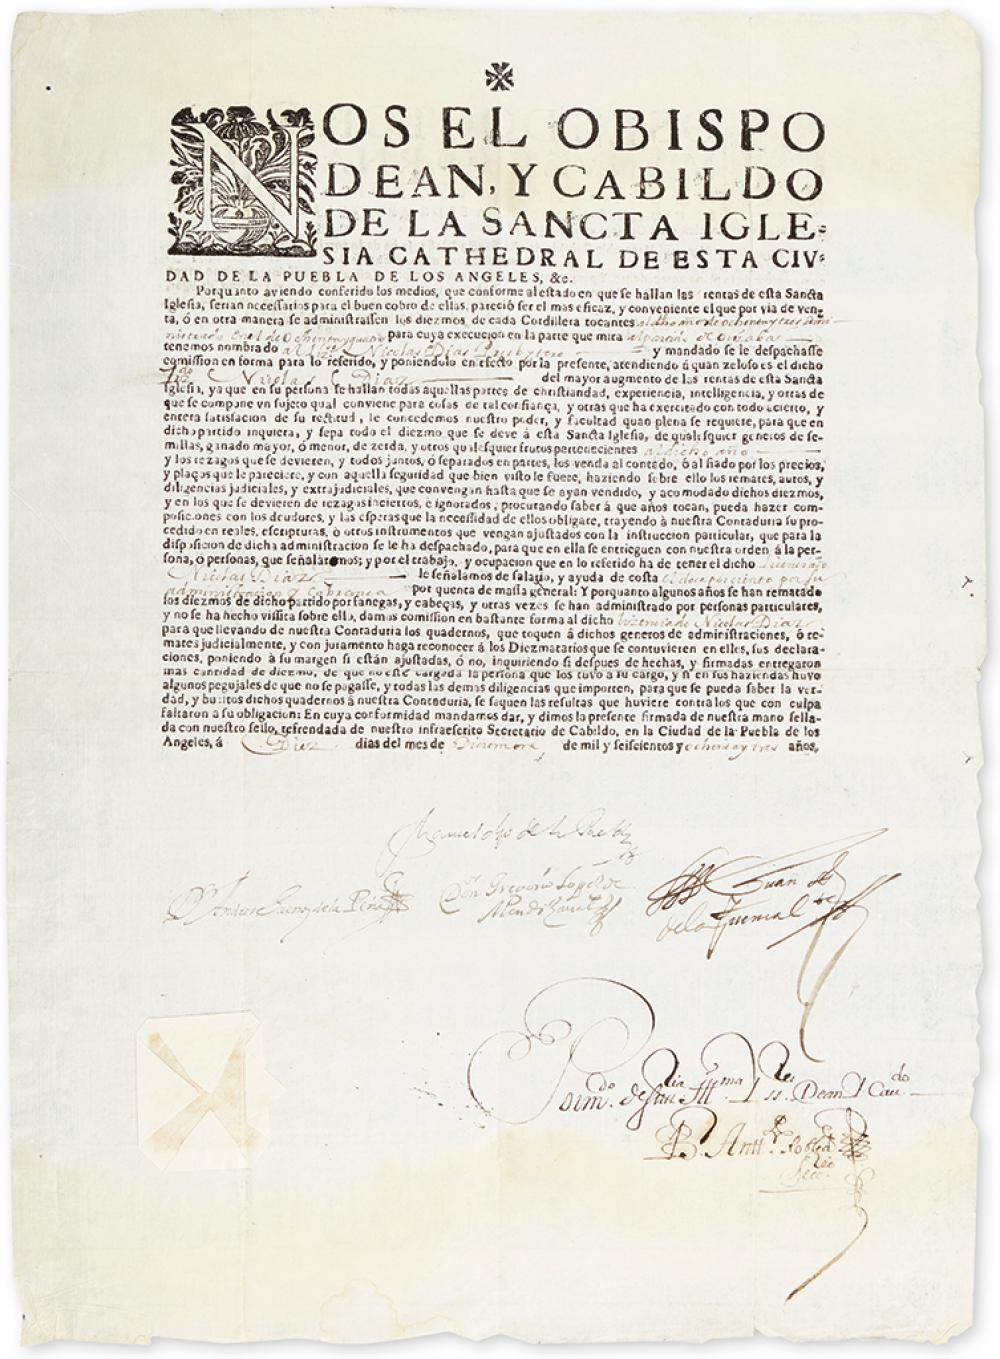 NOS EL OBISPO
DEAN, Y CABILDO
DE LA SANCTA IGLE-
SIA CATHEDRAL DE ESTA CIV-
DAD DE LA PUEBLA DE LOS ANGELES, &c.
Porquanto aviendo conferido los medios, que conforme al estado en que se hallan las rentas de esta Sancta
Iglesia, serian necessarios para el buen cobro de ellas, pareció ser el mas eficaz, y conveniente el que por via de ven-
ta, ó en otra manera se administrassen los diezmos de cada Cordillera tocantes al dho año de ochenta y tres
para cuya execucion en la parte que mira
tenemos nombrado a Nicolas Dias Presbytero y mandado se le despachasse
comission en forma para lo referido, y poniendolo en efecto por la presente, atendiendo á quan zeloso es el dicho
Nicolas Diaz del mayor augmento de las rentas de esta Sancta
Iglesia, ya que en su persona se hallan todas aquellas partes de christiandad, experiencia, intelligencia, y otras de
que se compone vn sujeto qual conviene para cosas de tal confiança, y otras que ha exercitado con todo acierto, y
entera satisfacion de su rectitud, le concedemos nuestro poder, y facultad quan plena se requiere, para que en
dicho partido inquiera, y sepa todo el diezmo que se deve à esta Sancta Iglesia, de qualesquier generos de se-
millas, ganado mayor, ó menor, de zerda, y otros qualesquier frutos pertenecientes al dicho año
y los rezagos que se devieren, y todos juntos, ó separados en partes, los venda al contado, ó al fiado por los precios,
y plaços que le pareciere, y con aquella seguridad que bien visto le fuere, haziendo sobre ello los remates, autos, y
diligencias judiciales, y extrajudiciales, que convengan hasta que se ayan vendido, y acomodado dichos diezmos,
y en los que se devieren de rezagos inciertos, é ignorados, procurando saber á que años tocan, pueda hazer com-
posiciones con los deudores, y las esperas que la necessidad de ellos obligare, trayendo à nuestra Contaduria su pro-
cedido en reales, escripturas, ó otros instrumentos que vengan ajustados con la instruccion particular, que para la
disposicion de dicha administracion se le ha despachado, para que en ella se entrieguen con nuestra orden á la per-
sona, ó personas, que señalaremos; y por el trabajo, y ocupacion que en lo referido ha de tener el dicho Licenciado
Nicolas Diaz le señalamos de salario, y ayuda de costa el doce por ciento por su
administracion y cobranca por quenta de massa general: Y porquanto algunos años se han rematado
los diezmos de dicho partido por fanegas, y cabeças, y otras vezes se han administrado por personas particulares,
y no se ha hecho vissita sobre ello, damos comission en bastante forma al dicho Licenciado Nicolas Diaz
para que llevando de nuestra Contaduria los quadernos, que toquen á dichos generos de administraciones, ó re-
mates judicialmente, y con juramento haga reconocer á los Diezmatarios que se contuvieren en elles, sus declara-
ciones, poniendo à su margen si están ajustadas, ó no, inquiriendo si despues de hechas, y firmadas entregaron
mas cantidad de diezmo, de que no esté cargada la persona que los tuvo a su cargo, y si en sus haziendas huvo
algunos pegujales de que no se pagasse, y todas las demas diligencias que importen, para que se pueda saber la ver-
dad, y bueltos dichos quadernos á nuestra Contaduria, se saquen las resultas que huviere contra los que con culpa
faltaron a su obligacion: En cuya conformidad mandamos dar, y dimos la presente firmada de nuestra mano sella-
da con nuestro sello, refrendada de nuestro infraescrito Secretario de Cabildo, en la Ciudad de la Puebla de los
Angeles, á Diez dias del mes de de mil y seiscientos y ochenta y tres años,
Manuel
D. Andres Saenz de la Peña
Don Gregorio Lopez de
Mendizaval
Juan
de la
Por md. de Dean Cau.do
Srio